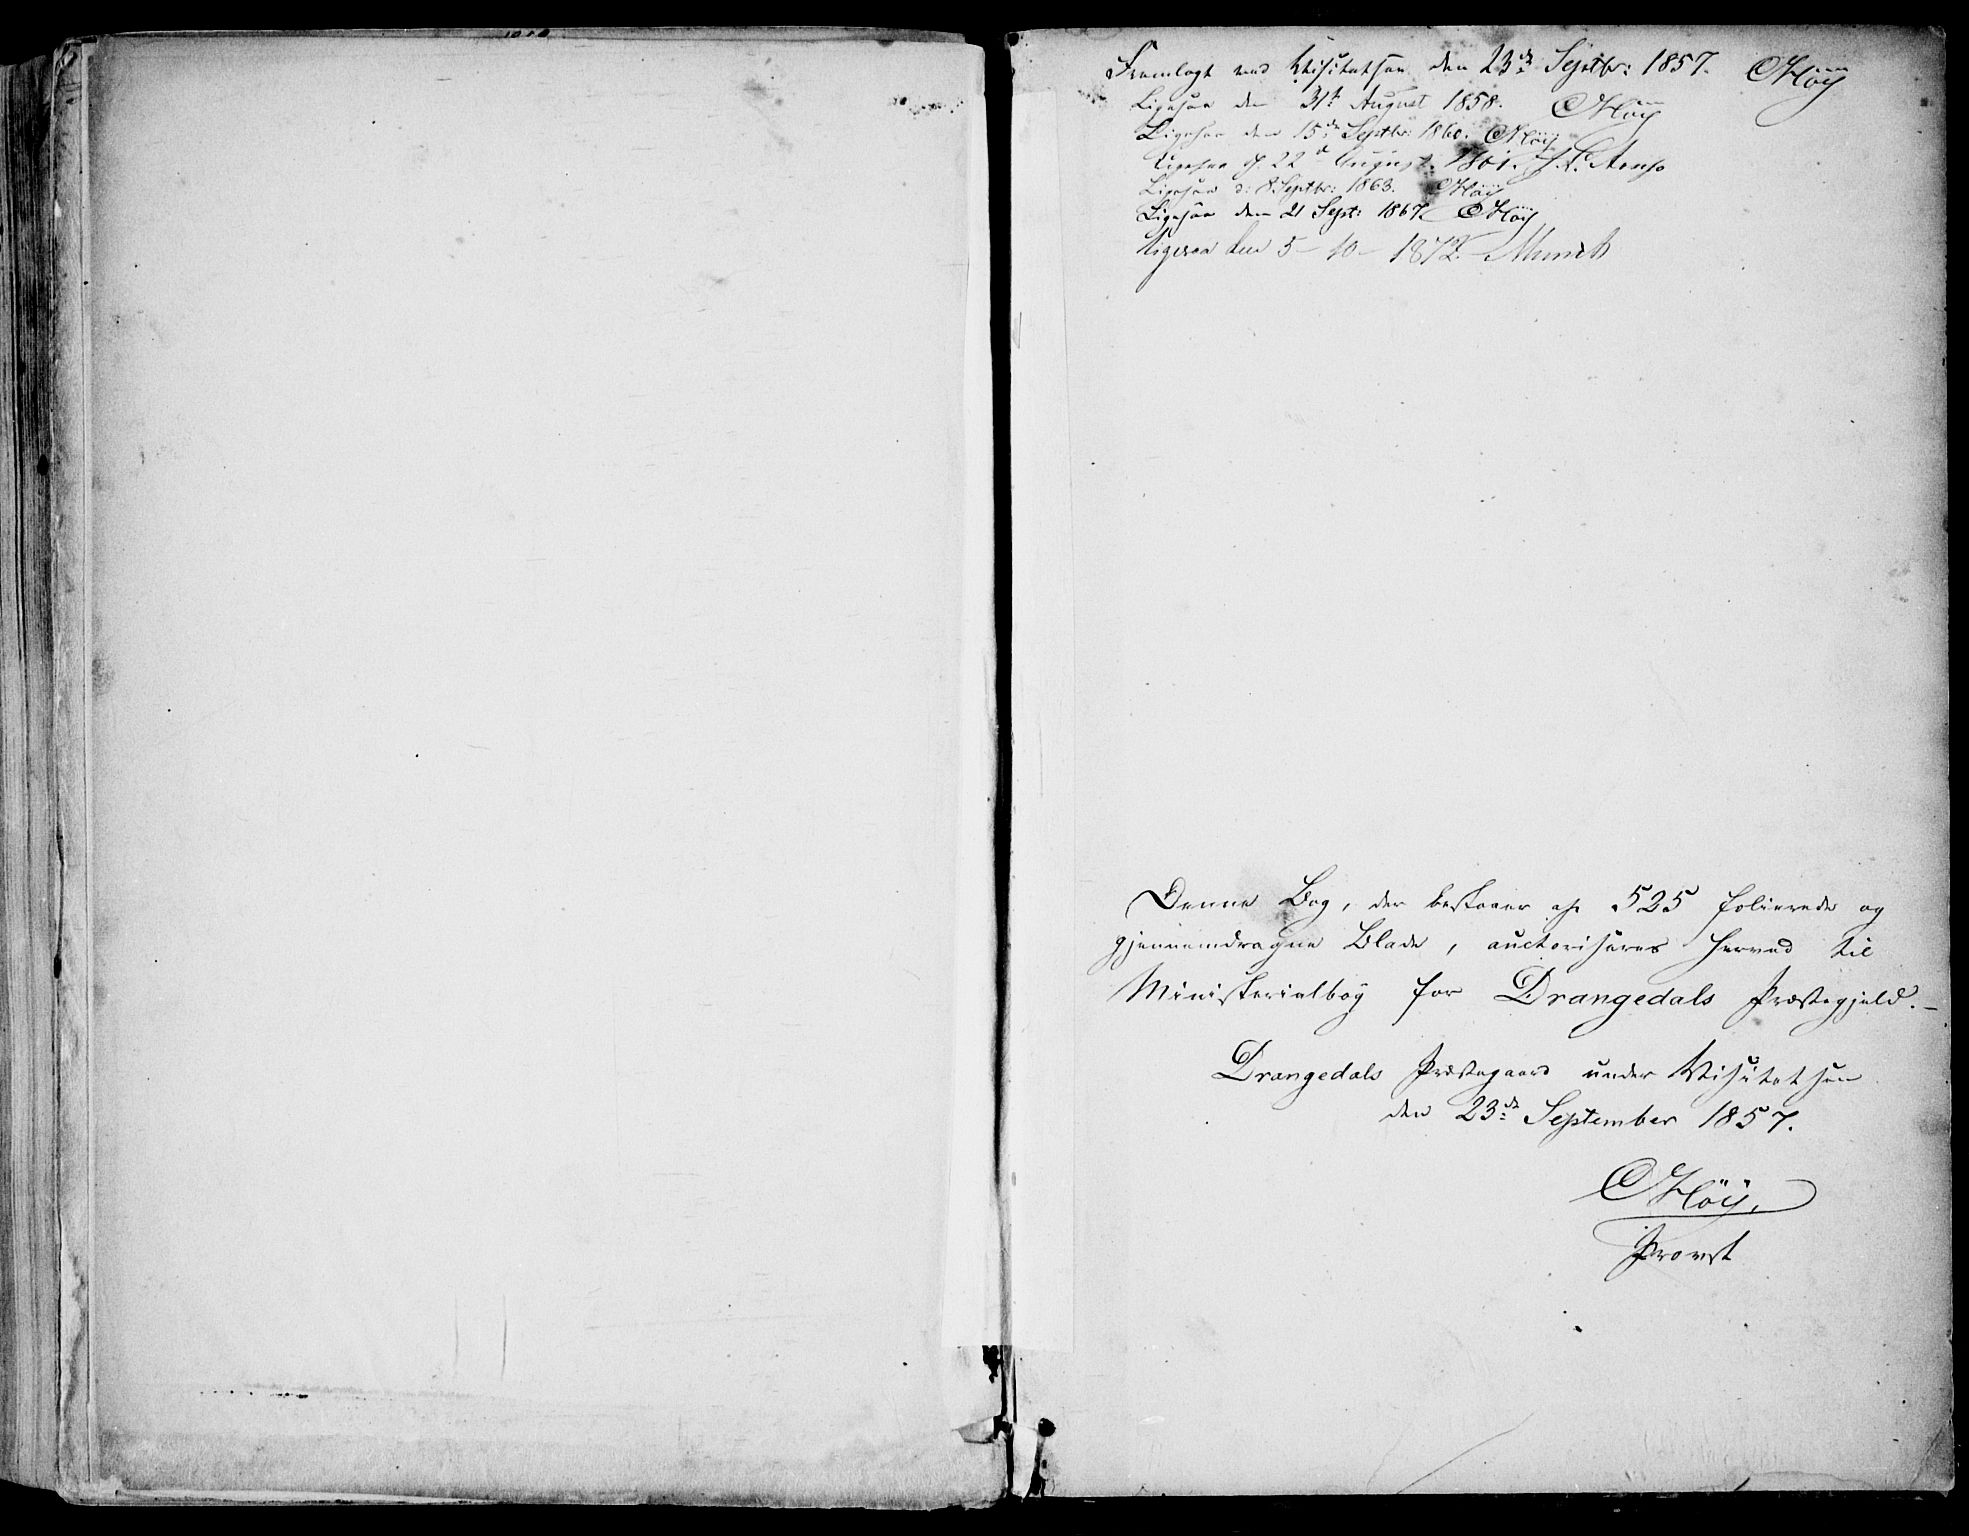 Fremlagt ved Visitatsen den 23de Septbr: 1857. CHöÿ
Ligesaa den 31te August 1858. CHöÿ
Ligesaa den 15de Septbr: 1860. CHöÿ
Ligesaa d. 22d August 1861.
Ligesaa d: 8 Septbr: 1863. CHöÿ
Ligesaa den 21 Sept: 1867. CHöÿ
Ligesaa den 5 - 10 - 1872. Munch
Denne Bog, der bestaaer af 525 folierede og
gjennemdragne Blade, auctoriseres herved til
Ministerialbog for Drangedals Præstegjeld. -
Drangedals Præstegaard under Visitatsen
den 23de September 1857.
CHöÿ,
Provst